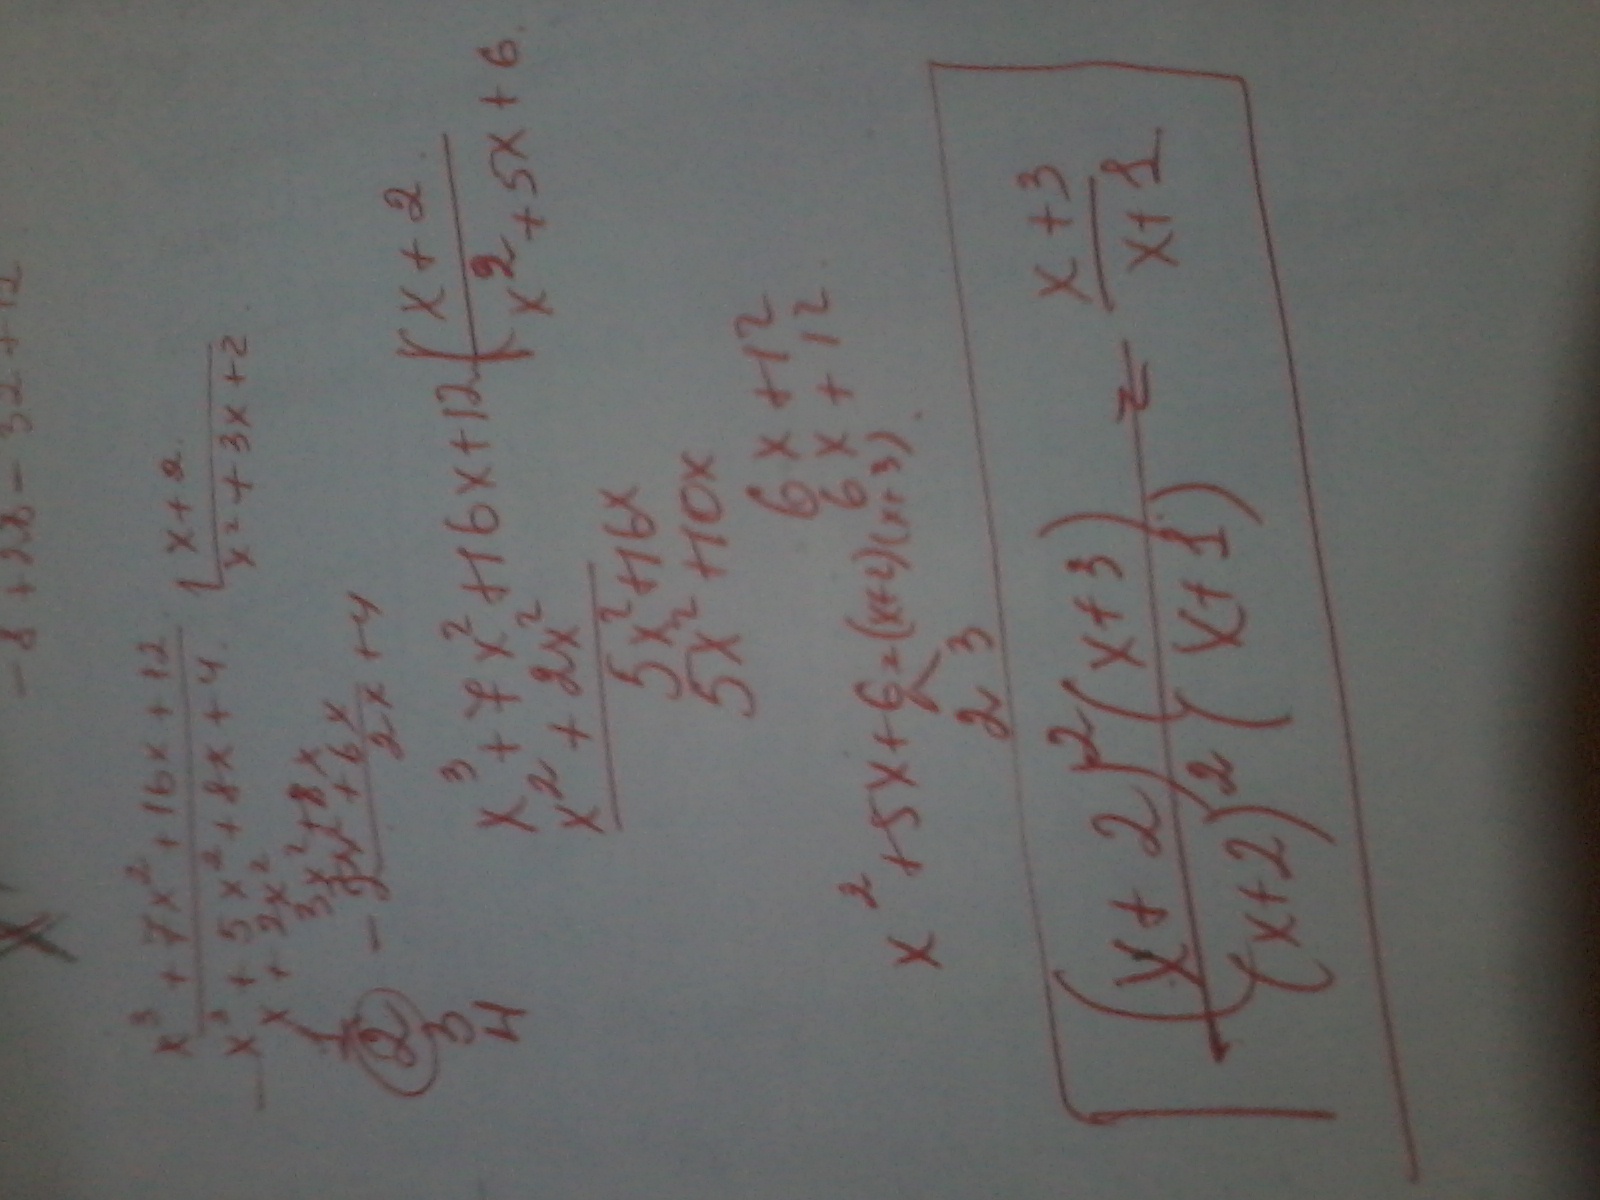 - 8 + 28 - 32 + 12
x³ + 7x² + 16x + 12
x³ + 5x² + 8x + 4
x + 2
x² + 3x + 2
x³ + 2x²
3x² + 8x
3x² + 6x
2x + 4
1
2
3
4
x³ + 7x² + 16x + 12
x + 2
x² + 2x²
x² + 5x + 6
5x² + 16x
5x² + 10x
6x + 12
6x + 12
x² + 5x + 6 = (x+2)(x+3)
2 3
(x + 2)² (x + 3)
(x + 2)² (x + 1)
=
x + 3
x + 1